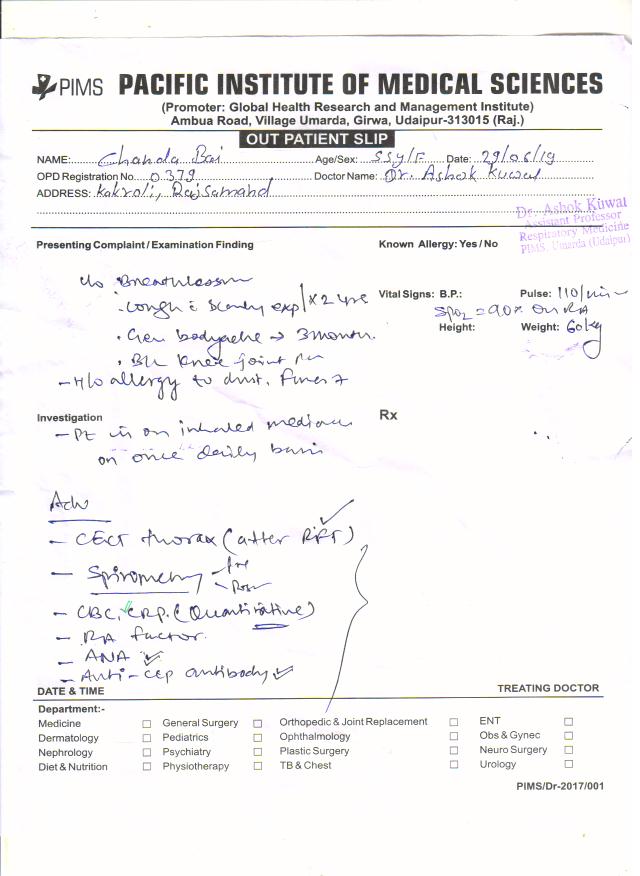 PIMS PACIFIC INSTITUTE OF MEDICAL SCIENCES
(Promoter: Global Health Research and Management Institute)
Ambua Road, Village Umarda, Girwa, Udaipur-313015 (Raj.)
OUT PATIENT SLIP
NAME: Chanda Bai Age/Sex: 55y/F Date: 29/06/19
OPD Registration No. 0379 Doctor Name: Dr. Ashok Kuwal
ADDRESS: Kakroli, Rajsamand
Dr. Ashok Kuwal
Assistant Professor
Respiratory Medicine
PIMS, Umarda (Udaipur)
Presenting Complaint/Examination Finding Known Allergy: Yes / No
c/o Breathlessness
Vital Signs: B.P.: Pulse: 110/min
. Cough c Scanty exp X 2 yrs
SpO2 = 90% on RA
Height: Weight: 60kg
. Gen bodyache → 3 month.
. B/L Knee joint
- H/o allergy to dust,
Investigation Rx
- Pt is on inhaled
on once daily basis
Adv
- CECT thorax (after RFT)
- Spirometry - Pre
- Post
- CBC, CRP. (Quantitative)
- RA factor.
- ANA
- Anti-CCP antibody
DATE & TIME TREATING DOCTOR
Department:-
Medicine General Surgery Orthopedic & Joint Replacement ENT
Dermatology Pediatrics Ophthalmology Obs & Gynec
Nephrology Psychiatry Plastic Surgery Neuro Surgery
Diet & Nutrition Physiotherapy TB & Chest Urology
PIMS/Dr-2017/001